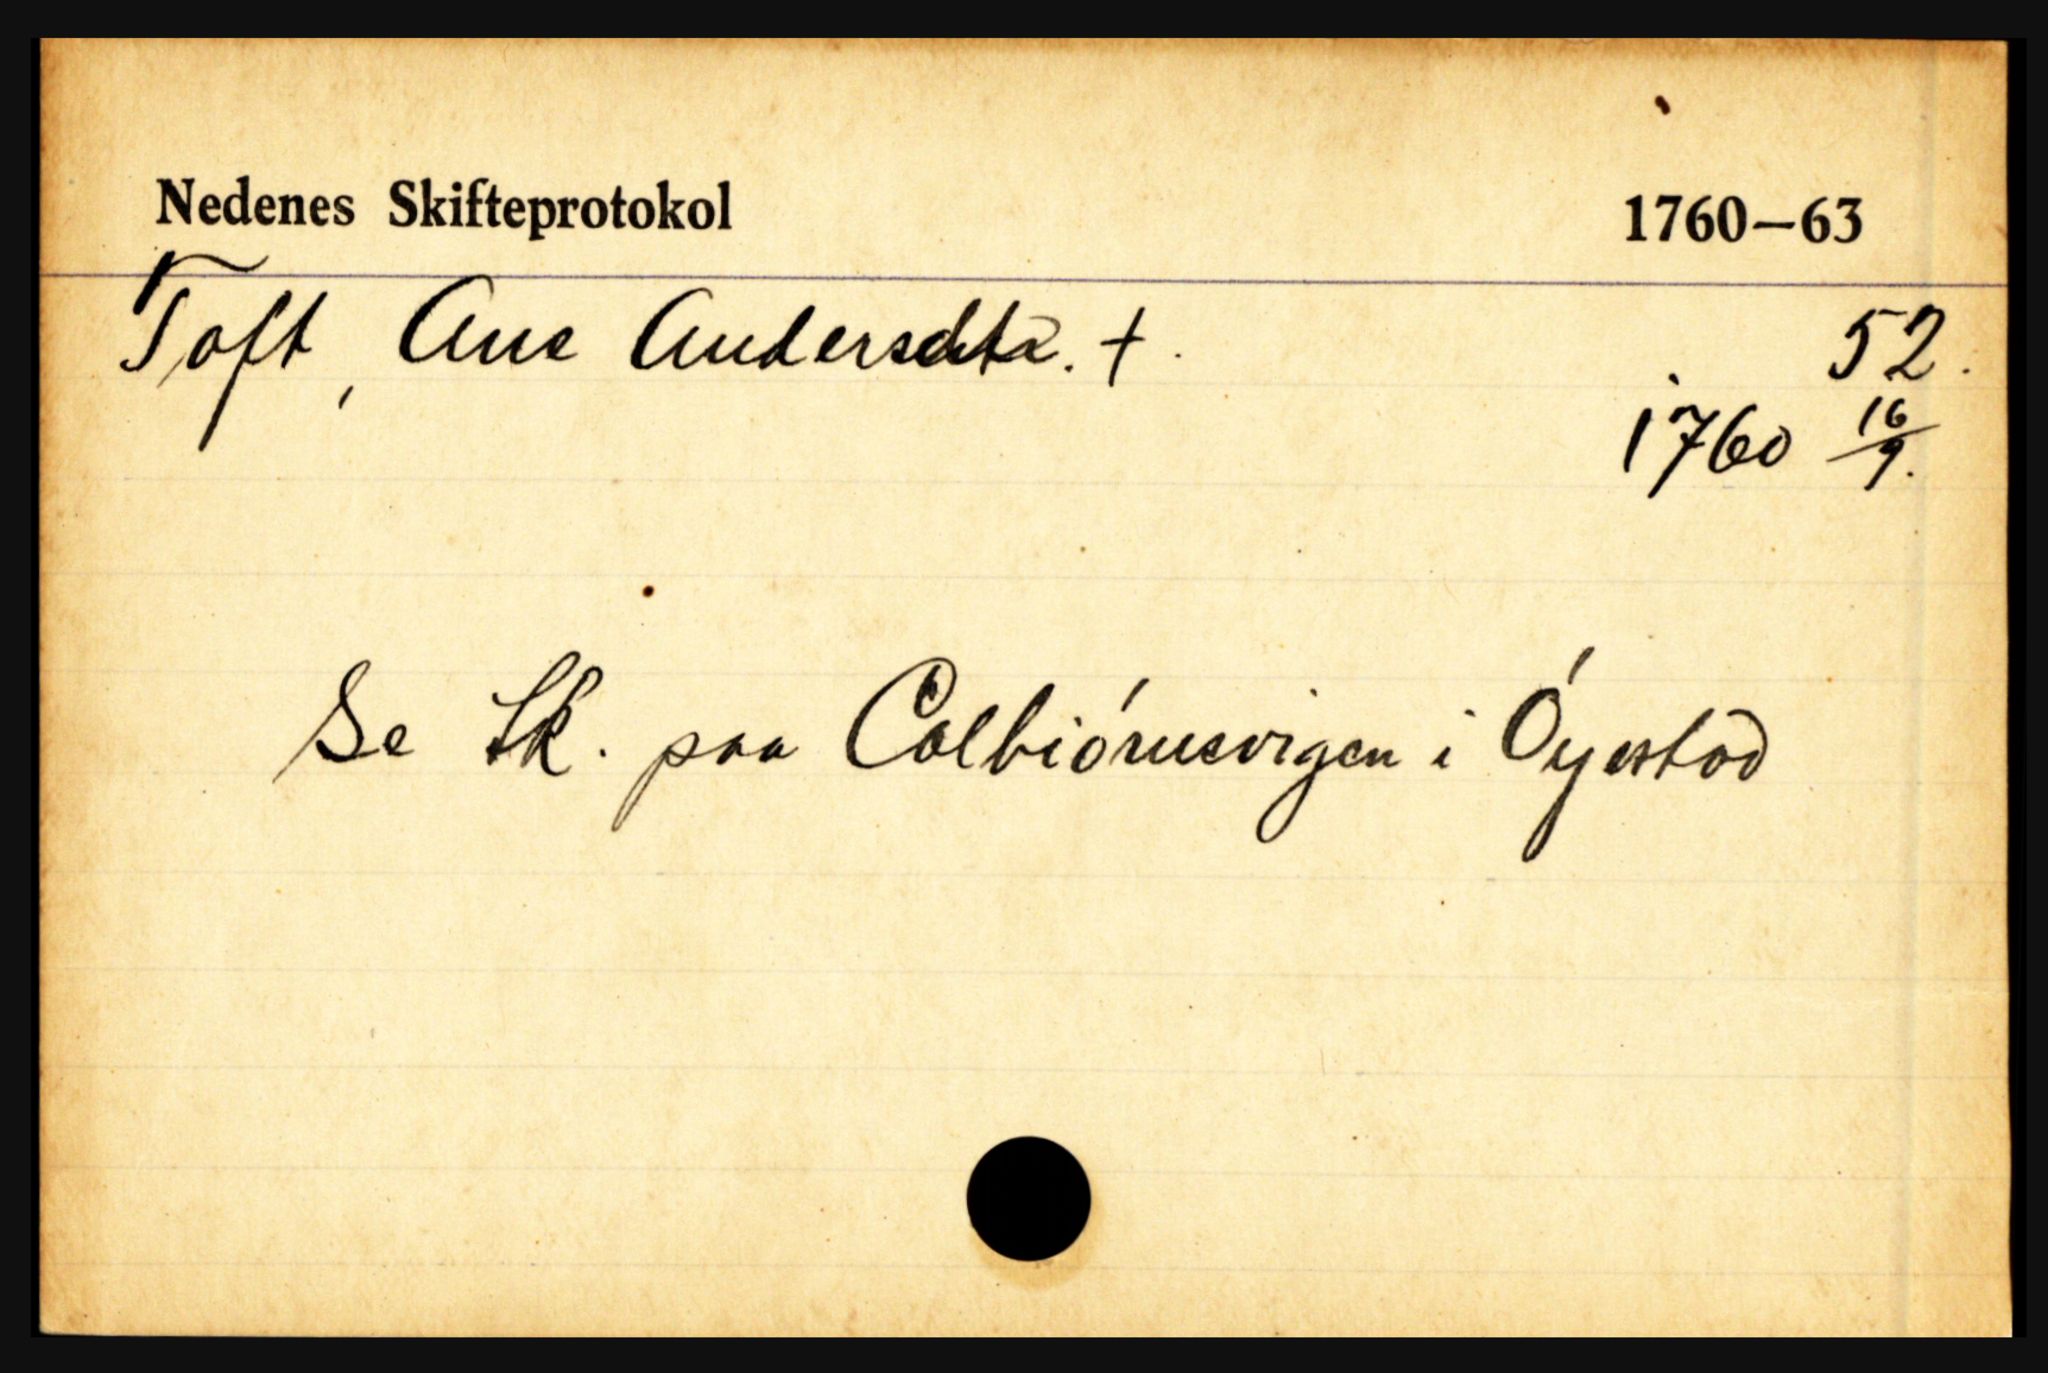 Nedenes Skifteprotokol 1760—63
Toft, Ane Andersdtr. † 52.
1760 16/9.
Se Sk. paa Colbiórnsvigen i Óyestad